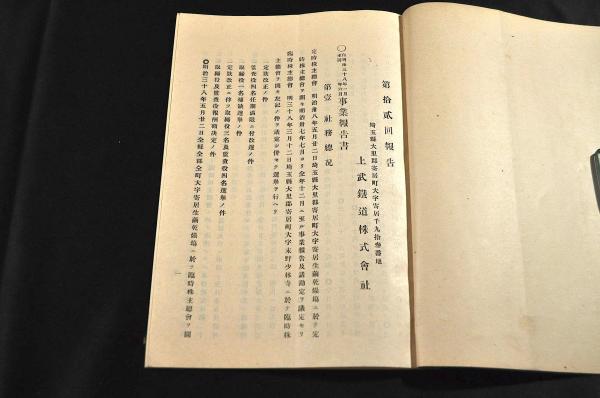 第拾貳回報告
埼玉縣大里郡寄居町大字寄居千九拾參番地
上武鐵道株式會社
自明治三十八年一月
至同年六月
事業報告書
第壹 社務總況
定時株主總會 明治卅八年五月廿二日埼玉縣大里郡寄居町大字寄居生繭乾燥塲ニ於テ定
時株主總會ヲ開キ明治卅七年七月ヨリ仝年十二月ニ至ル事業報告及諸勘定ヲ議定セリ
臨時株主總會 明三十八年三月十二日埼玉縣大里郡寄居町大字末野少林寺ニ於テ臨時株
主總會ヲ開キ左記ノ件ヲ議定シ併セテ選擧ヲ行ヘリ
一定欵改正ノ件
一監査役四名任期滿限ニ付改選ノ件
一取締役一名補缺選擧ノ件
一定欵改正ニ伴ヲ取締役三名及監査役四名選擧ノ件
一取締役及監査役報酬額决定ノ件
◎明治三十八年五月廿二日仝縣仝郡仝町大字寄居生繭乾燥塲ニ於テ臨時株主總會ヲ開
一